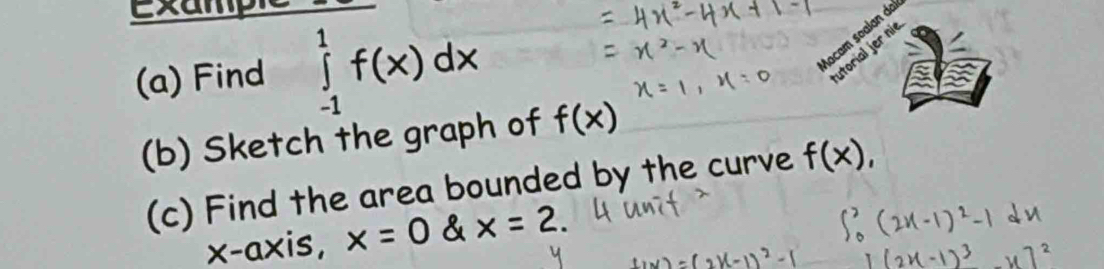 Example
= 4x² - 4x + 1 - 1
(a) Find ∫₋₁¹ f(x) dx
= x² - x
x = 1, x = 0
Macam soalan dala
tutorial jer nie..
(b) Sketch the graph of f(x)
(c) Find the area bounded by the curve f(x),
x-axis, x = 0 & x = 2.
4 unit²
∫₀² (2x-1)² - 1 dx
y
f(x) = (2x-1)² - 1
(2x-1)³ - x]²